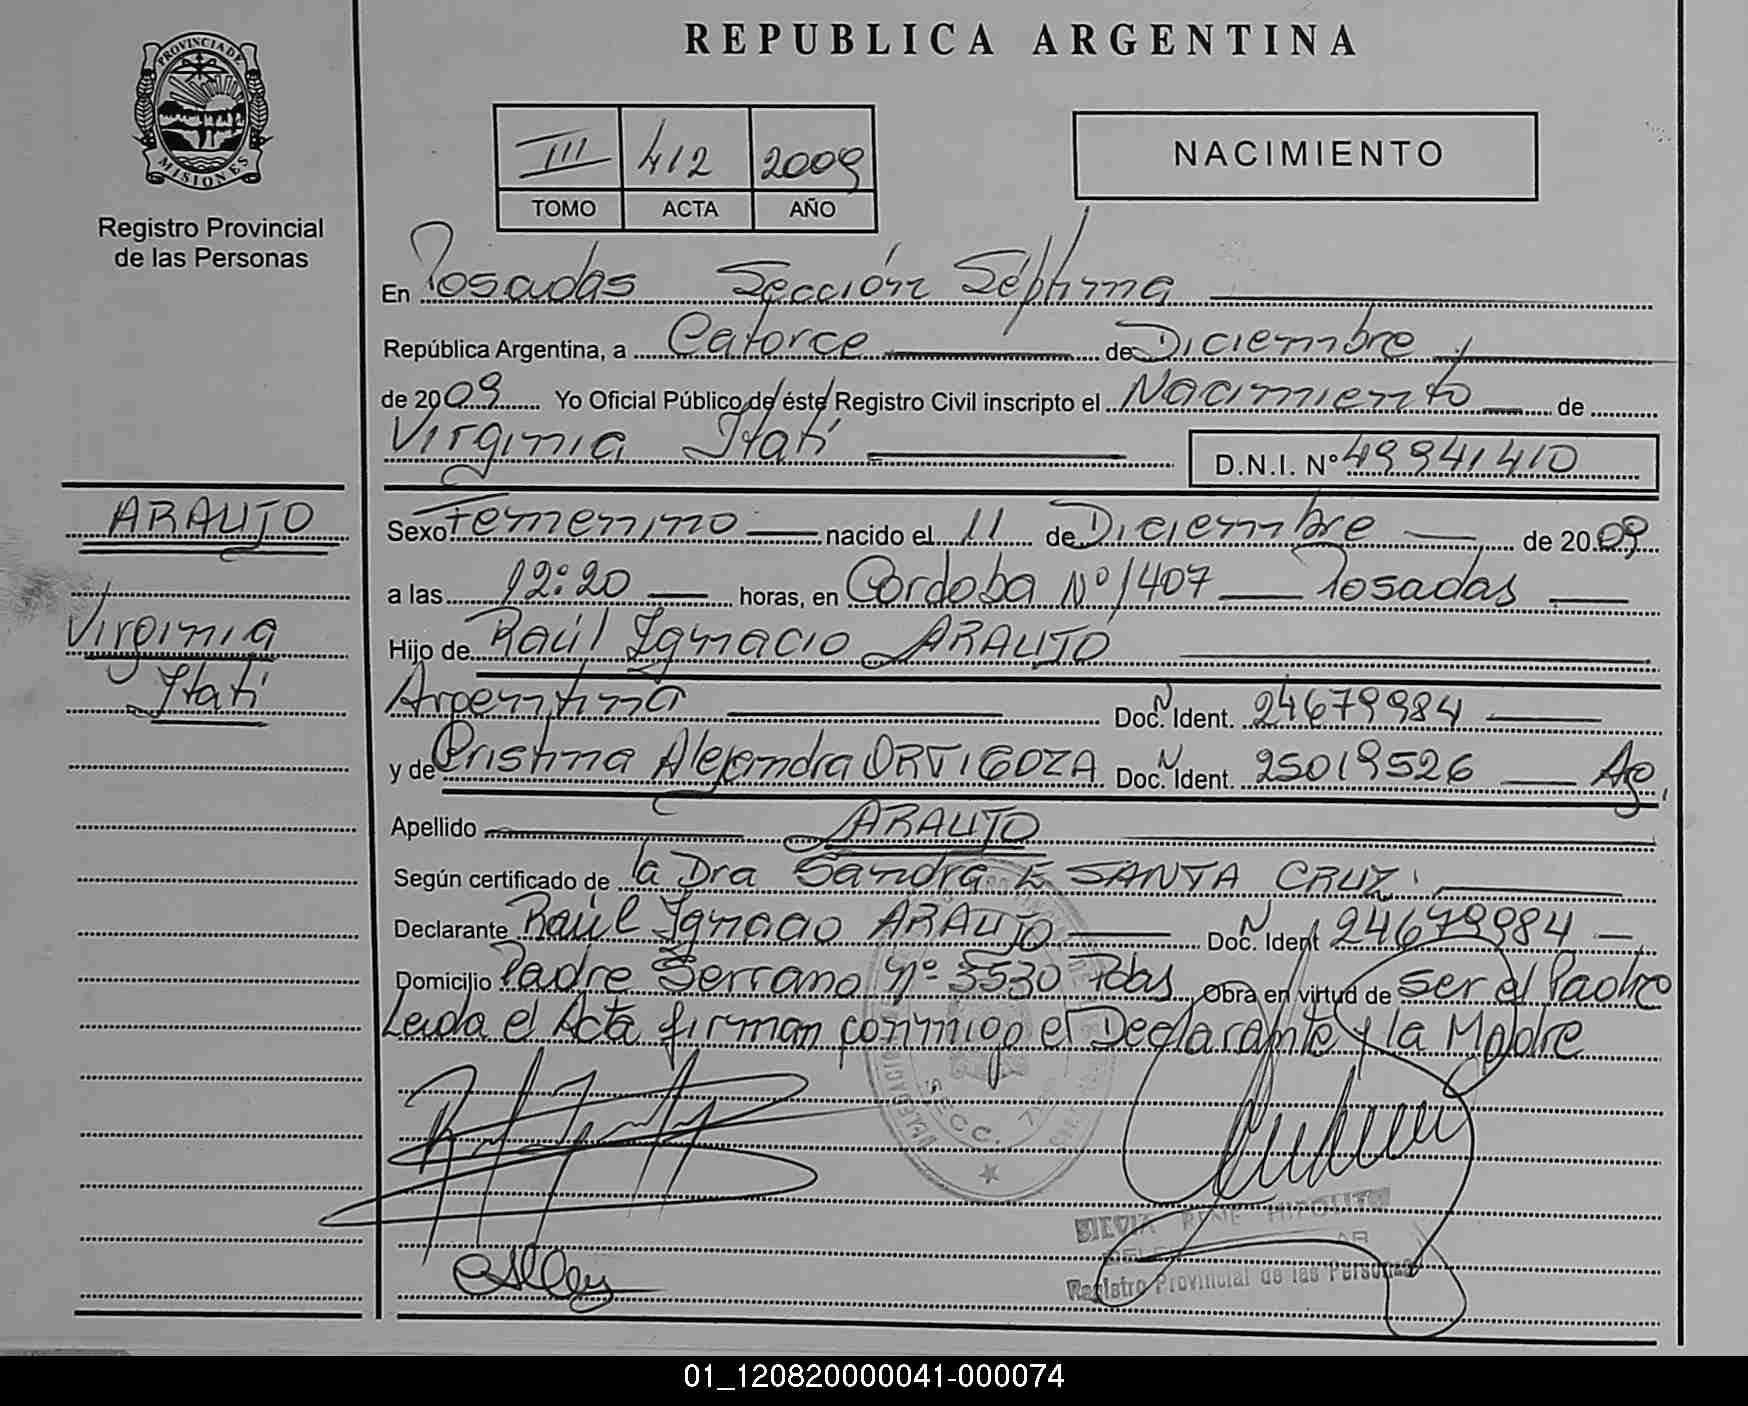 PROVINCIA DE
MISIONES
Registro Provincial
de las Personas
ARAUJO
Virginia
Itatí
REPUBLICA ARGENTINA
III 412 2009
TOMO ACTA AÑO
NACIMIENTO
En Posadas Sección Séptima
República Argentina, a Catorce de Diciembre
de 2009 Yo Oficial Público de éste Registro Civil inscripto el Nacimiento de
Virginia Itatí D.N.I. Nº 49941410
Sexo Femenino nacido el 11 de Diciembre de 2009
a las 12:20 horas, en Cordoba Nº 1407 Posadas
Hijo de Raúl Ignacio ARAUJO
Argentina Doc. Ident. 24679984
y de Cristina Alejandra ORTIGOZA Doc. Ident. 25019526 Arg.
Apellido ARAUJO
Según certificado de la Dra Sandra E SANTA CRUZ
Declarante Raúl Ignacio ARAUJO Doc. Ident 24679984
Domicilio Padre Serrano Nº 3530 Pdas Obra en virtud de ser el Padre
Leida el Acta firman conmigo el Declarante y la Madre
SECC. 7
Registro Provincial de las Personas
01_120820000041-000074